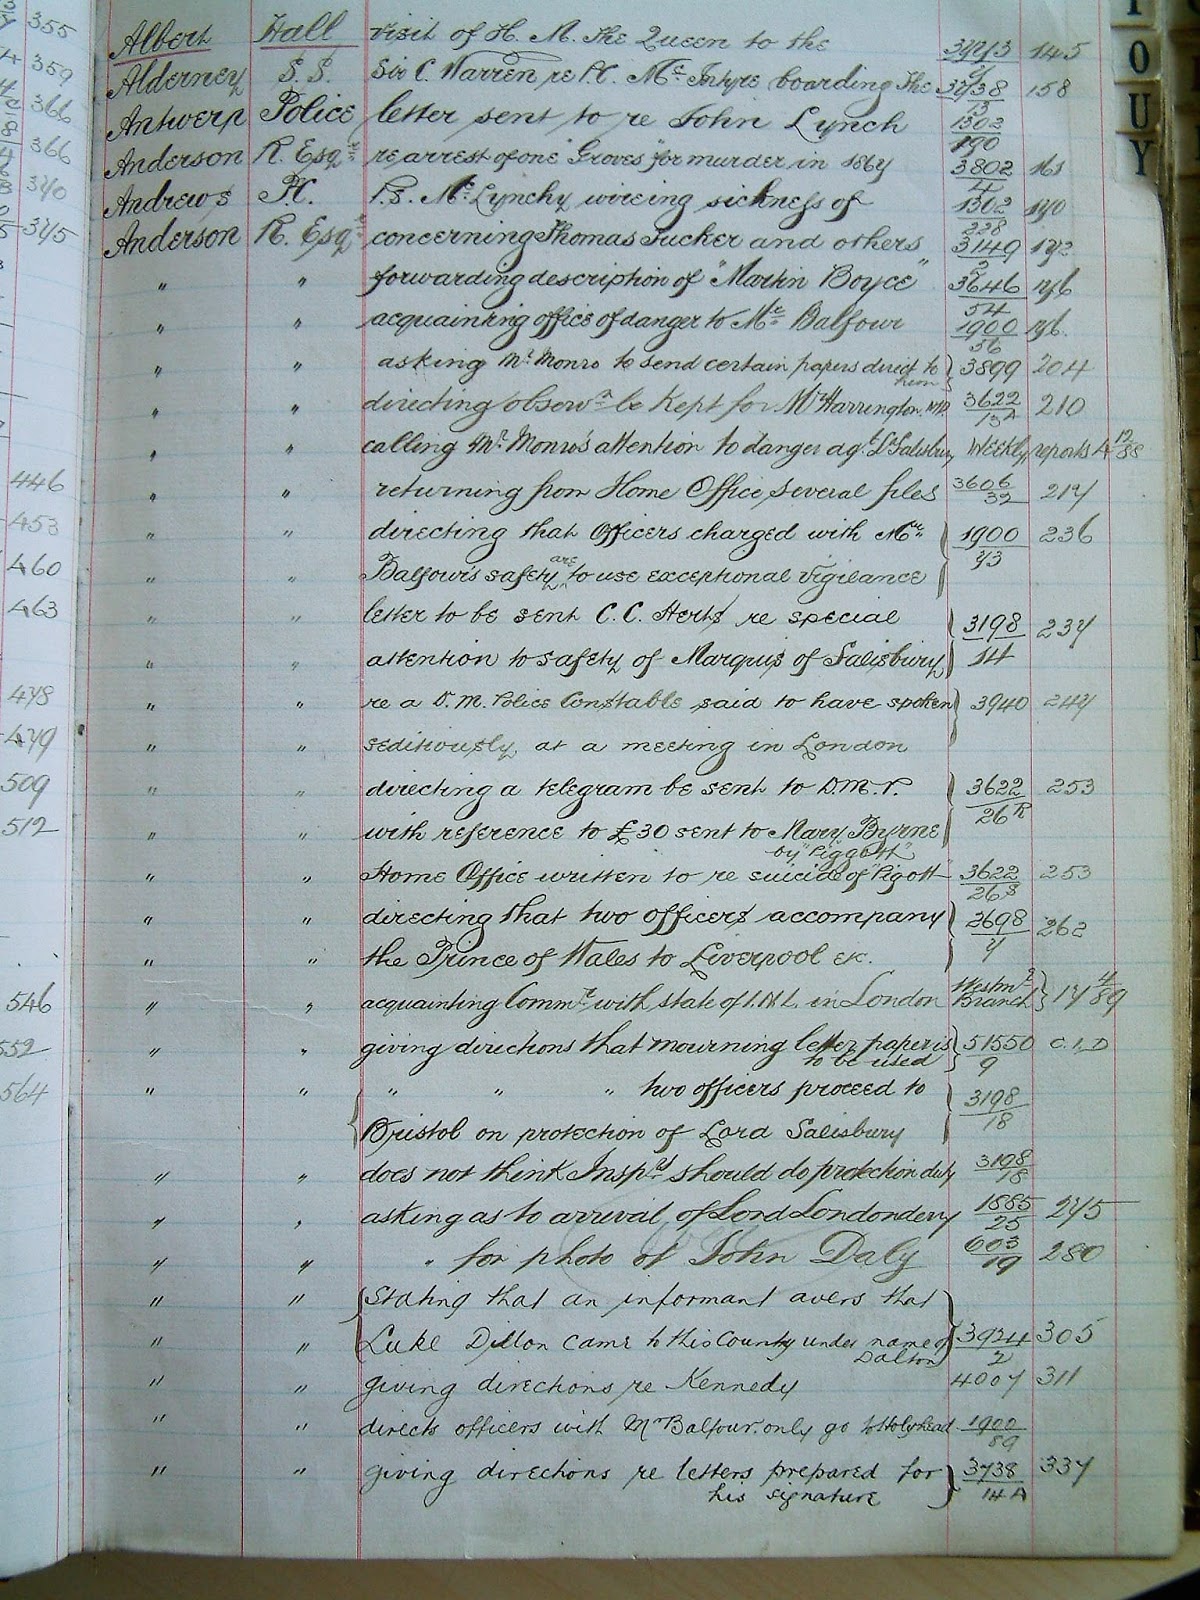 355
359
366
366
340
345
446
453
460
463
478
479
509
512
546
552
564
Albert Hall visit of H. M. the Queen to the 3943 145
Alderney S.S. Sir C. Warren re P.C. Mc Intyre boarding the 3738/13 158
Antwerp Police letter sent to re John Lynch 1302/190
Anderson R. Esqre re arrest of one "Groves" for murder in 1864 3802/4 161
Andrews P.C. P.S. Mc Lynchy wireing sickness of 1302/228 170
Anderson R. Esqre concerning Thomas Tucker and others 3149/2 172
" " forwarding description of "Martin Boyce" 3646/54 176
" " acquainting office of danger to Mr Balfour 1900/56 176
" " asking Mr Monro to send certain papers direct to } 3899 204
him
" " directing observn be kept for Mr Harrington. M.P. 3622/13A 210
" " calling Mr Monro's attention to danger agt Ld Salisbury Weekly reports 4 12/88
" " returning from Home Office several files 3606/32 217
" " directing that Officers charged with Mr } 1900/73 236
" " Balfour's safety are to use exceptional vigilance
" " letter to be sent C.C. Herts re special } 3198/14 237
" " attention to safety of Marquis of Salisbury
" " re a D.M. Police Constable said to have spoken } 3940 244
" " seditiously, at a meeting in London
" " directing a telegram be sent to D.M.P. } 3622/26R 253
" " with reference to £30 sent to Mary Byrne
by "Piggott"
" " Home Office written to re suicide of "Pigott" 3622/26S 253
" " directing that two officers accompany } 2698/7 262
" " the Prince of Wales to Liverpool etc.
" " acquainting Commr with state of I.N.L. in London Westmr Branch } 17 4/89
" " giving directions that mourning letter paper is } 51550/9 C.I.D
to be used
" " " " " two officers proceed to } 3198/18
Bristol on protection of Lord Salisbury
" " does not think Inspr should do protection duty 3198/18
" " asking as to arrival of Lord Londonderry 1885/25 275
" " " for photo of John Daly 603/19 280
" " Stating that an informant avers that
" " Luke Dillon came to this County under name of } 3924/2 305
Dalton
" " giving directions re Kennedy 4007 311
" " directs officers with Mr Balfour only go to Holyhead 1900/89
" " giving directions re letters prepared for } 3738/14A 337
his signature
T
O
U
Y